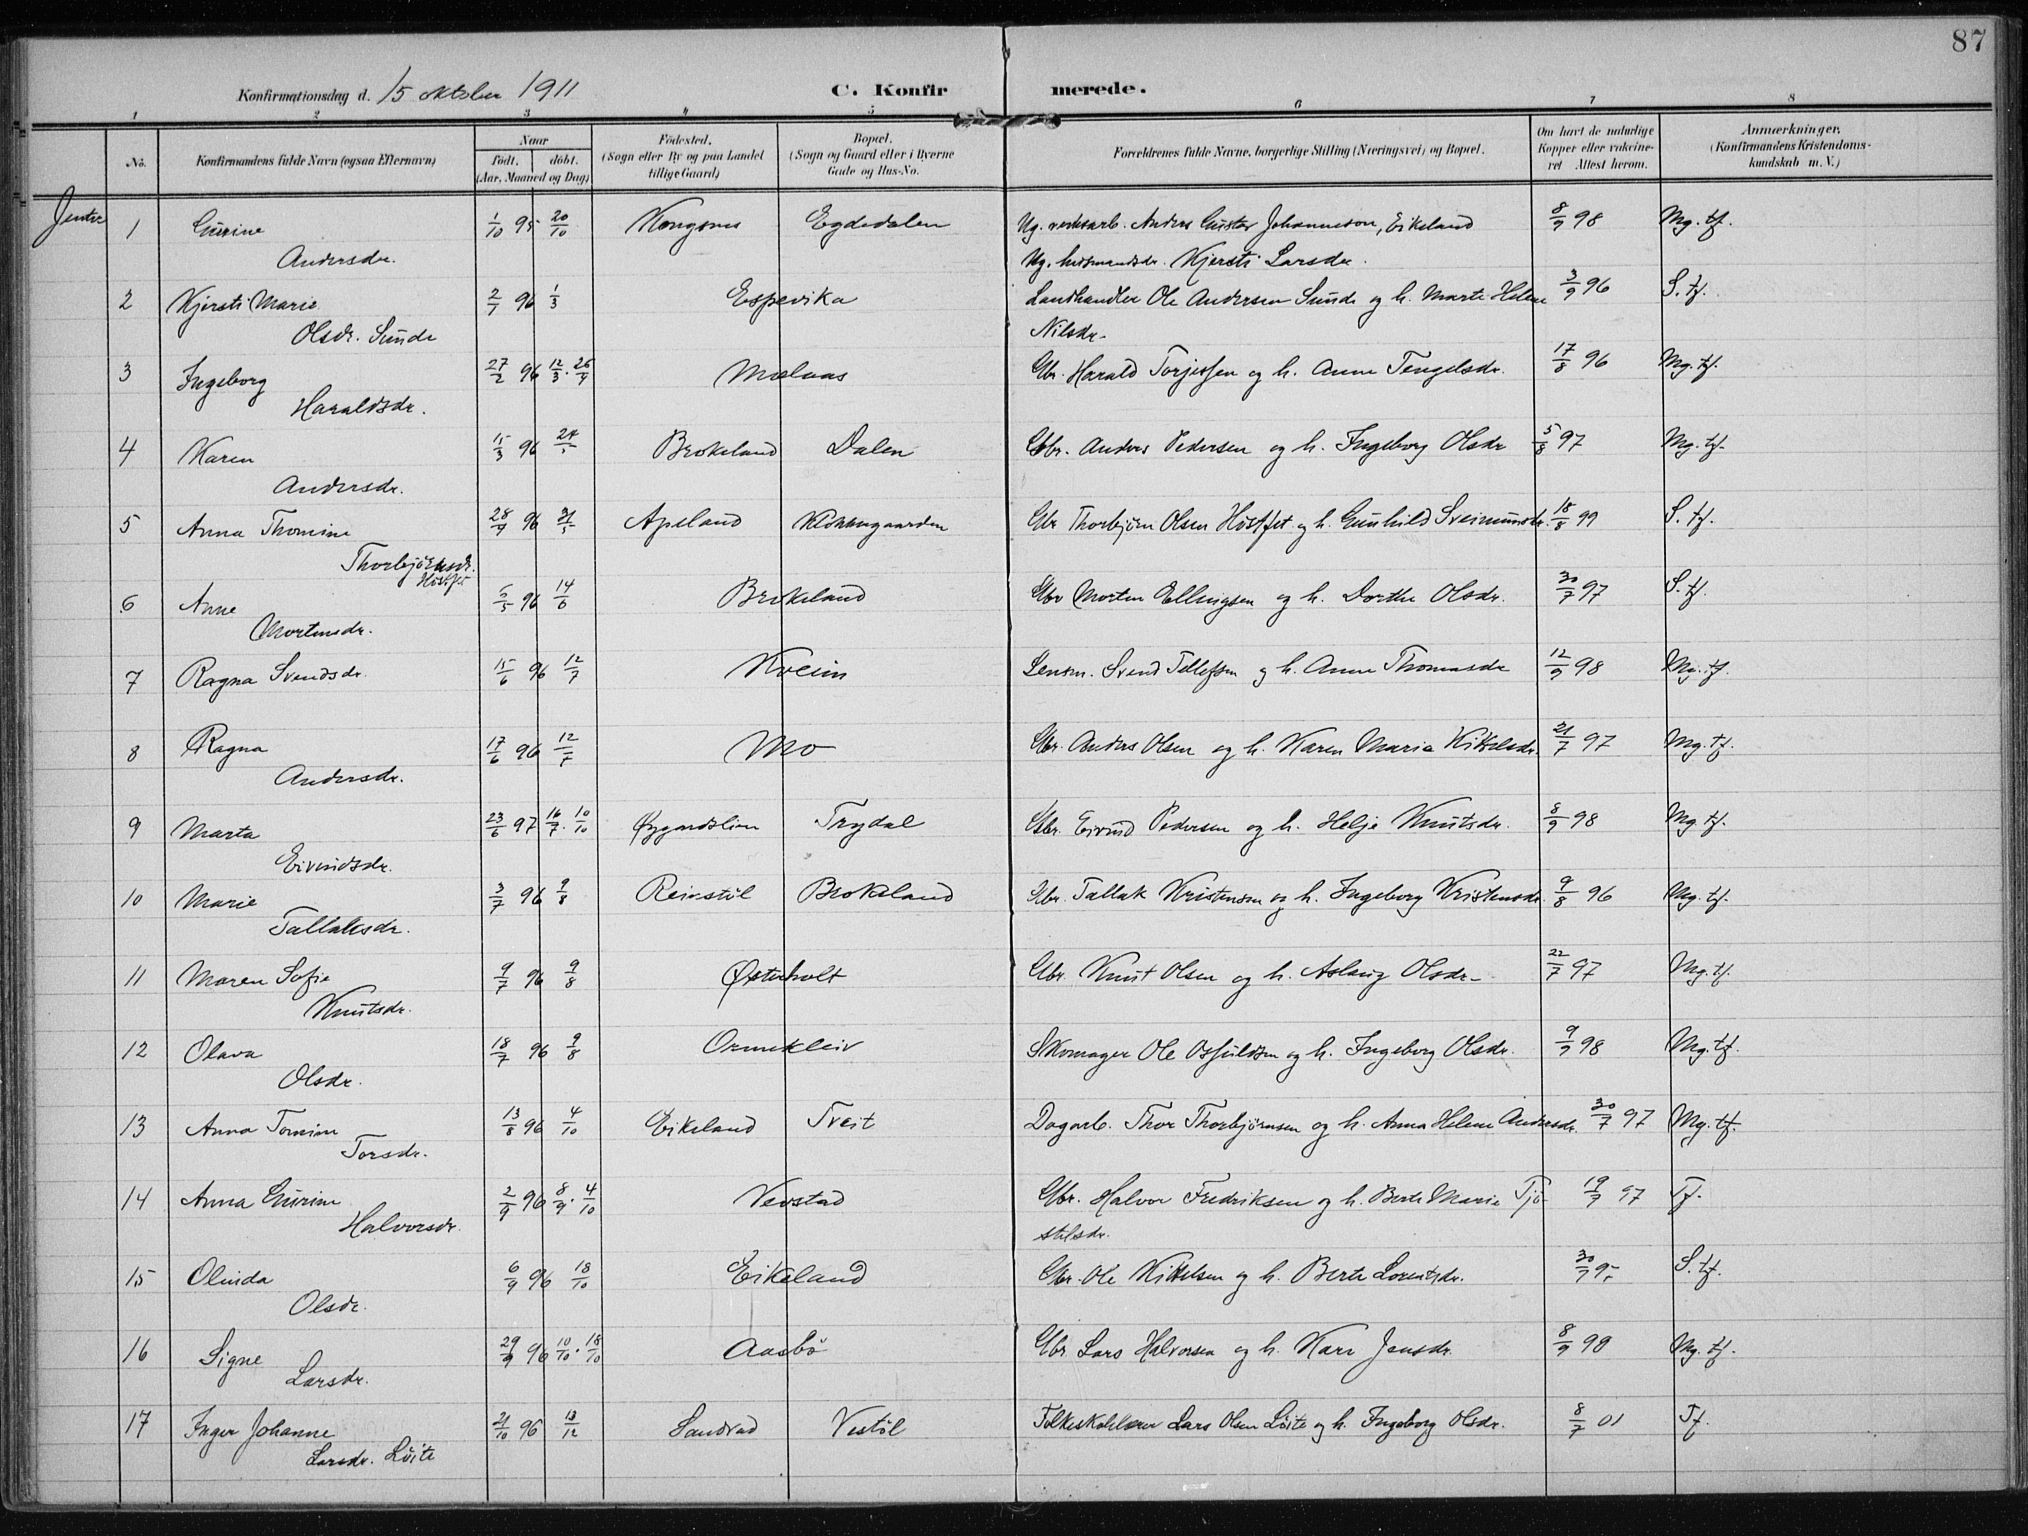 87
Konfirmationsdag d. 15 oktober 1911 C. Konfir merede.
1 2 3 4 5 6 7 8
No. Konfirmandens fulde Navn (ogsaa Efternavn) Naar født. døbt. (Aar, Maaned og Dag) Fødested. (Sogn eller By og paa Landet tillige Gaard) Bopæl. (Sogn og Gaard eller i Byerne Gade og Hus-No. Forældrenes fulde Navne, borgerlige Stilling (Næringsvei) og Bopæl. Om havt de naturlige Kopper eller vakcineret Attest herom. Anmærkninger. (Konfirmandens Kristendomskundskab m. V.)
Jenter
1 Gurine 1/10 95 20/10 Kongsnes Egdedalen Ug. verksarb. Anders Gustav Johannesson, Eikeland 8/9 98 Mg. tf.
Andersdr. Ug. husmandsdr. Kjersti Larsdr.
2 Kjersti Marie 2/1 96 1/3 Espevika Landhandler Ole Andersen Sunde og h. Marte Helene 3/9 96 S. tf.
Olsdr. Sunde Nilsdr.
3 Ingeborg 27/2 96 12/3. 26/4 Mælaas Gbr. Harald Torjussen og h. Anne Tengelsdr. 17/8 96 Mg. tf.
Haraldsdr.
4 Karen 15/3 96 Brokeland Dalen Gbr. Anders Pedersen og h. Ingeborg Olsdr 5/8 97 Mg. tf.
Andersdr.
5 Anna Thomine 28/4 96 31/5 Apeland Klokkergaarden Gbr Thorbjørn Olsen Høstfet og h. Gunhild Sveinunsdr. 18/8 99 S. tf.
Thorbjørnsdr.
Høstfet
6 Anne 6/5 96 14/6 Brokeland Gbr Morten Ellingsen og h. Dorthe Olsdr. 30/7 97 S. tf.
Mortensdr.
7 Ragna Svendsdr. 15/6 96 12/7 Kveim Lensm. Svend Tellefsen og h. Anne Thomasdr 12/9 98 Mg. tf.
8 Ragna 17/6 96 12/7 Mo Gbr. Anders Olsen og h. Karen Maria Kittelsdr. 21/7 97 Mg. tf.
Andersdr.
9 Marta 23/6 97 16/7. 10/10 Øygardslien Trydal Gbr. Eivind Pedersen og h. Helje Knutsdr. 8/9 98 Mg. tf.
Eivindsdr.
10 Marie 3/7 96 9/8 Reinstøl Brokeland Gbr. Tallak Kristensen og h. Ingeborg Kristensdr. 9/8 96 Mg. tf.
Tallaksdr.
11 Maren Sofie 9/7 96 9/8 Østerholt Gbr. Knut Olsen og h. Aslaug Olsdr. 22/7 97 Mg. tf.
Knutsdr.
12 Olava 18/7 96 9/8 Ormekleiv Skomager Ole Osfuldsen og h. Ingeborg Olsdr. 9/9 98 Mg. tf.
Olsdr.
13 Anna Tomine 13/8 96 4/10 Eikeland Tveit Dagarb. Thor Thorbjørnsen og h. Anna Helene Andersdr. 30/7 97 Mg. tf.
Torsdr.
14 Anna Gurine 2/9 96 8/9. 4/10 Vevstad Gbr. Halvor Fredriksen og h. Berte Marie Tjø- 19/7 97 Tf.
Halvorsdr. stelsdr.
15 Olinda 6/9 96 18/10 Eikeland Gbr. Ole Kittelsen og h. Berte Lorentsdr. S. tf.
Olsdr.
16 Signe 29/9 96 10/10. 18/10 Aasbø Gbr Lars Halvorsen og h. Kari Jensdr. 8/9 Mg. tf.
Larsdr.
17 Inger Johanne 21/10 96 13/12 Sandvad Vestøl Folkeskolelærer Lars Olsen Løite og h. Ingeborg Olsdr. 8/7 01 Tf.
Larsdr. Løite